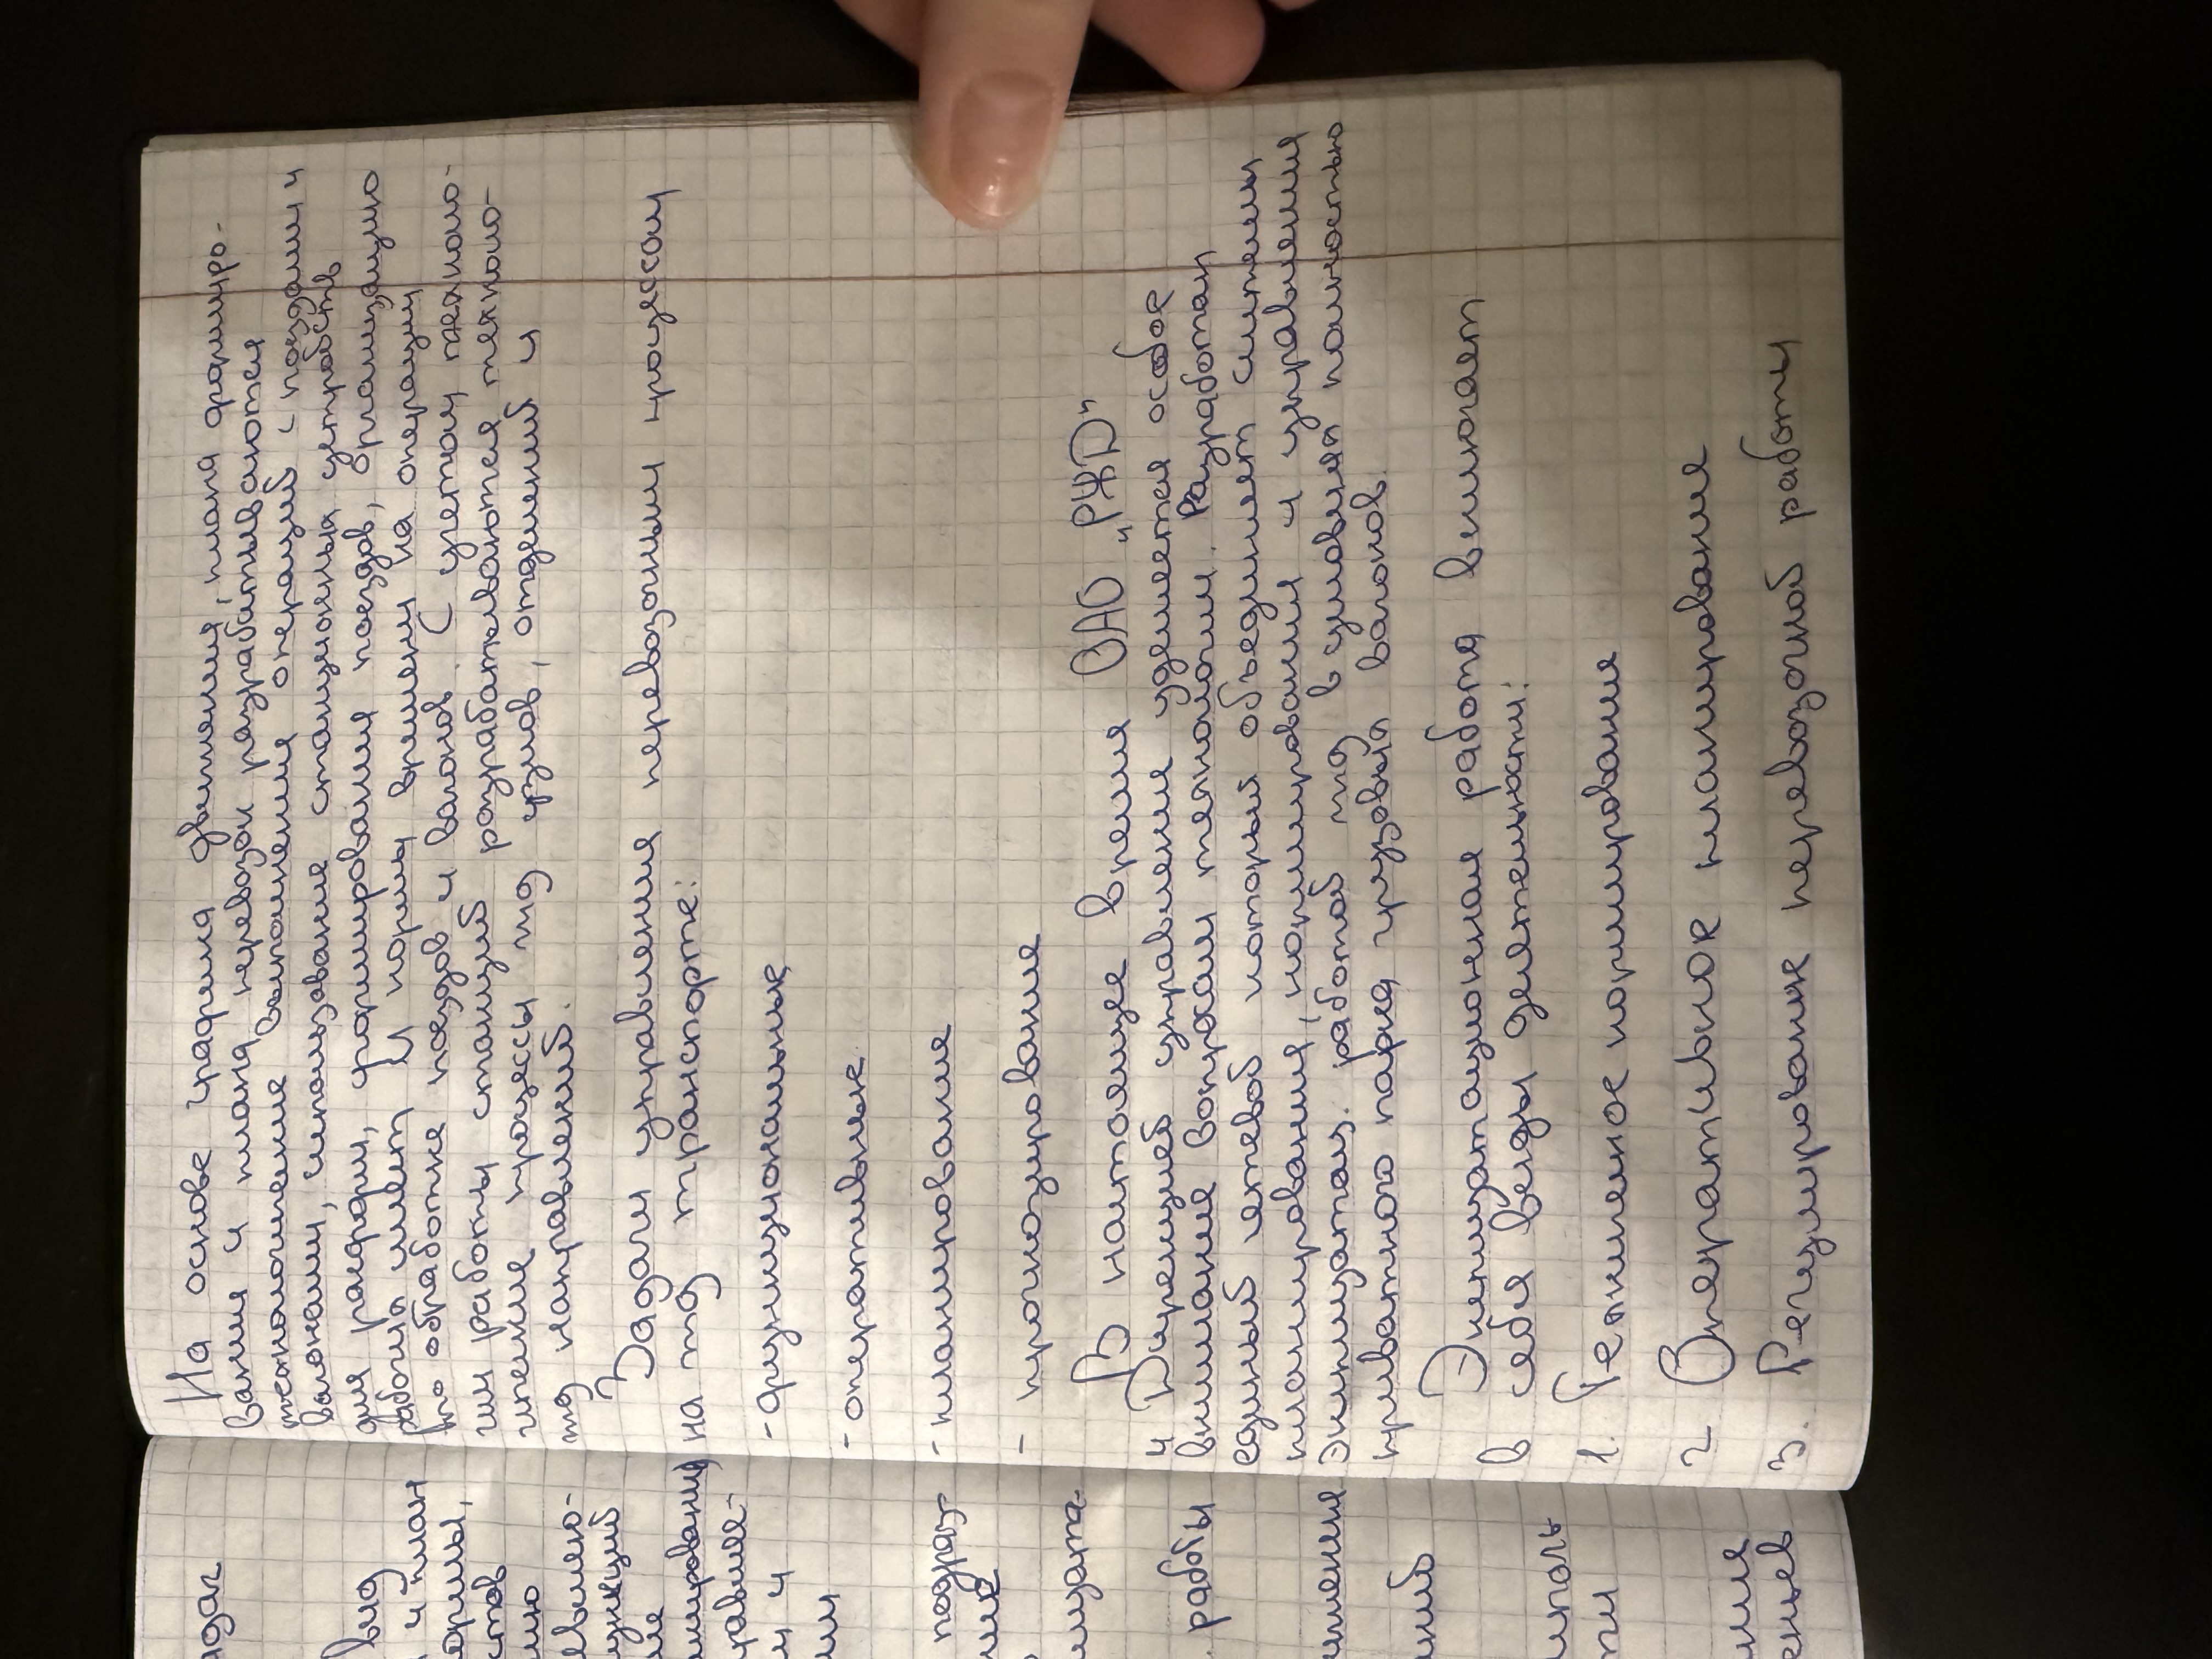 На основе графика движения, плана формиро-
вания и плана перевозок разрабатываются
технологические выполнение операций с поездами и
вагонами, использование станционных устройств
для расформ, формирования поездов, организацию
рабочих смет и нормы времени на операции
по обработке поездов и вагонов. С учетом техноло-
гии работы станций разрабатываются техноло-
гические процессы жд узлов, отделений и
жд направлений.
Задачи управления перевозочным процессом
на жд транспорте:
- функциональные
- оперативные
- планирование
- прогнозирование
В настоящее время ОАО "РЖД"
и Дирекцией управление уделяется особое
внимание вопросам технологии. Разработан
единый сетевой который объединяет системы
планирования, нормирования и управления
эксплуатац. работой жд в условиях полностью
приватного парка грузовых вагонов.
Эксплуатационная работа включает
в себя виды деятельности:
1. Техническое нормирование
2 Оперативное планирование
3. Регулирование перевозочной работы
вид
и план
работы